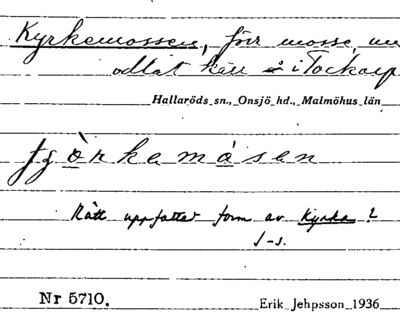 Kyrkemossen, förr mosse, nu
odlat kärr i Tockarp
Hallaröds sn., Onsjö hd., Malmöhus län
tjòrkemåsen
Rätt uppfattat form av Kyrka?
Nr 5710.
Erik Jehpsson 1936